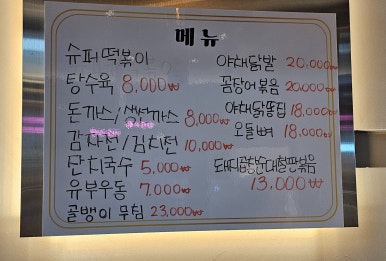 메뉴
슈퍼떡볶이
탕수육 8,000₩
돈까스/생선까스 8,000₩
감자전/김치전 10,000₩
잔치국수 5,000₩
유부우동 7,000₩
골뱅이 무침 23,000₩
야채닭발 20,000₩
꼼장어볶음 20,000₩
야채닭똥집 18,000₩
오돌뼈 18,000₩
돼지곱창순대철판볶음
13,000₩